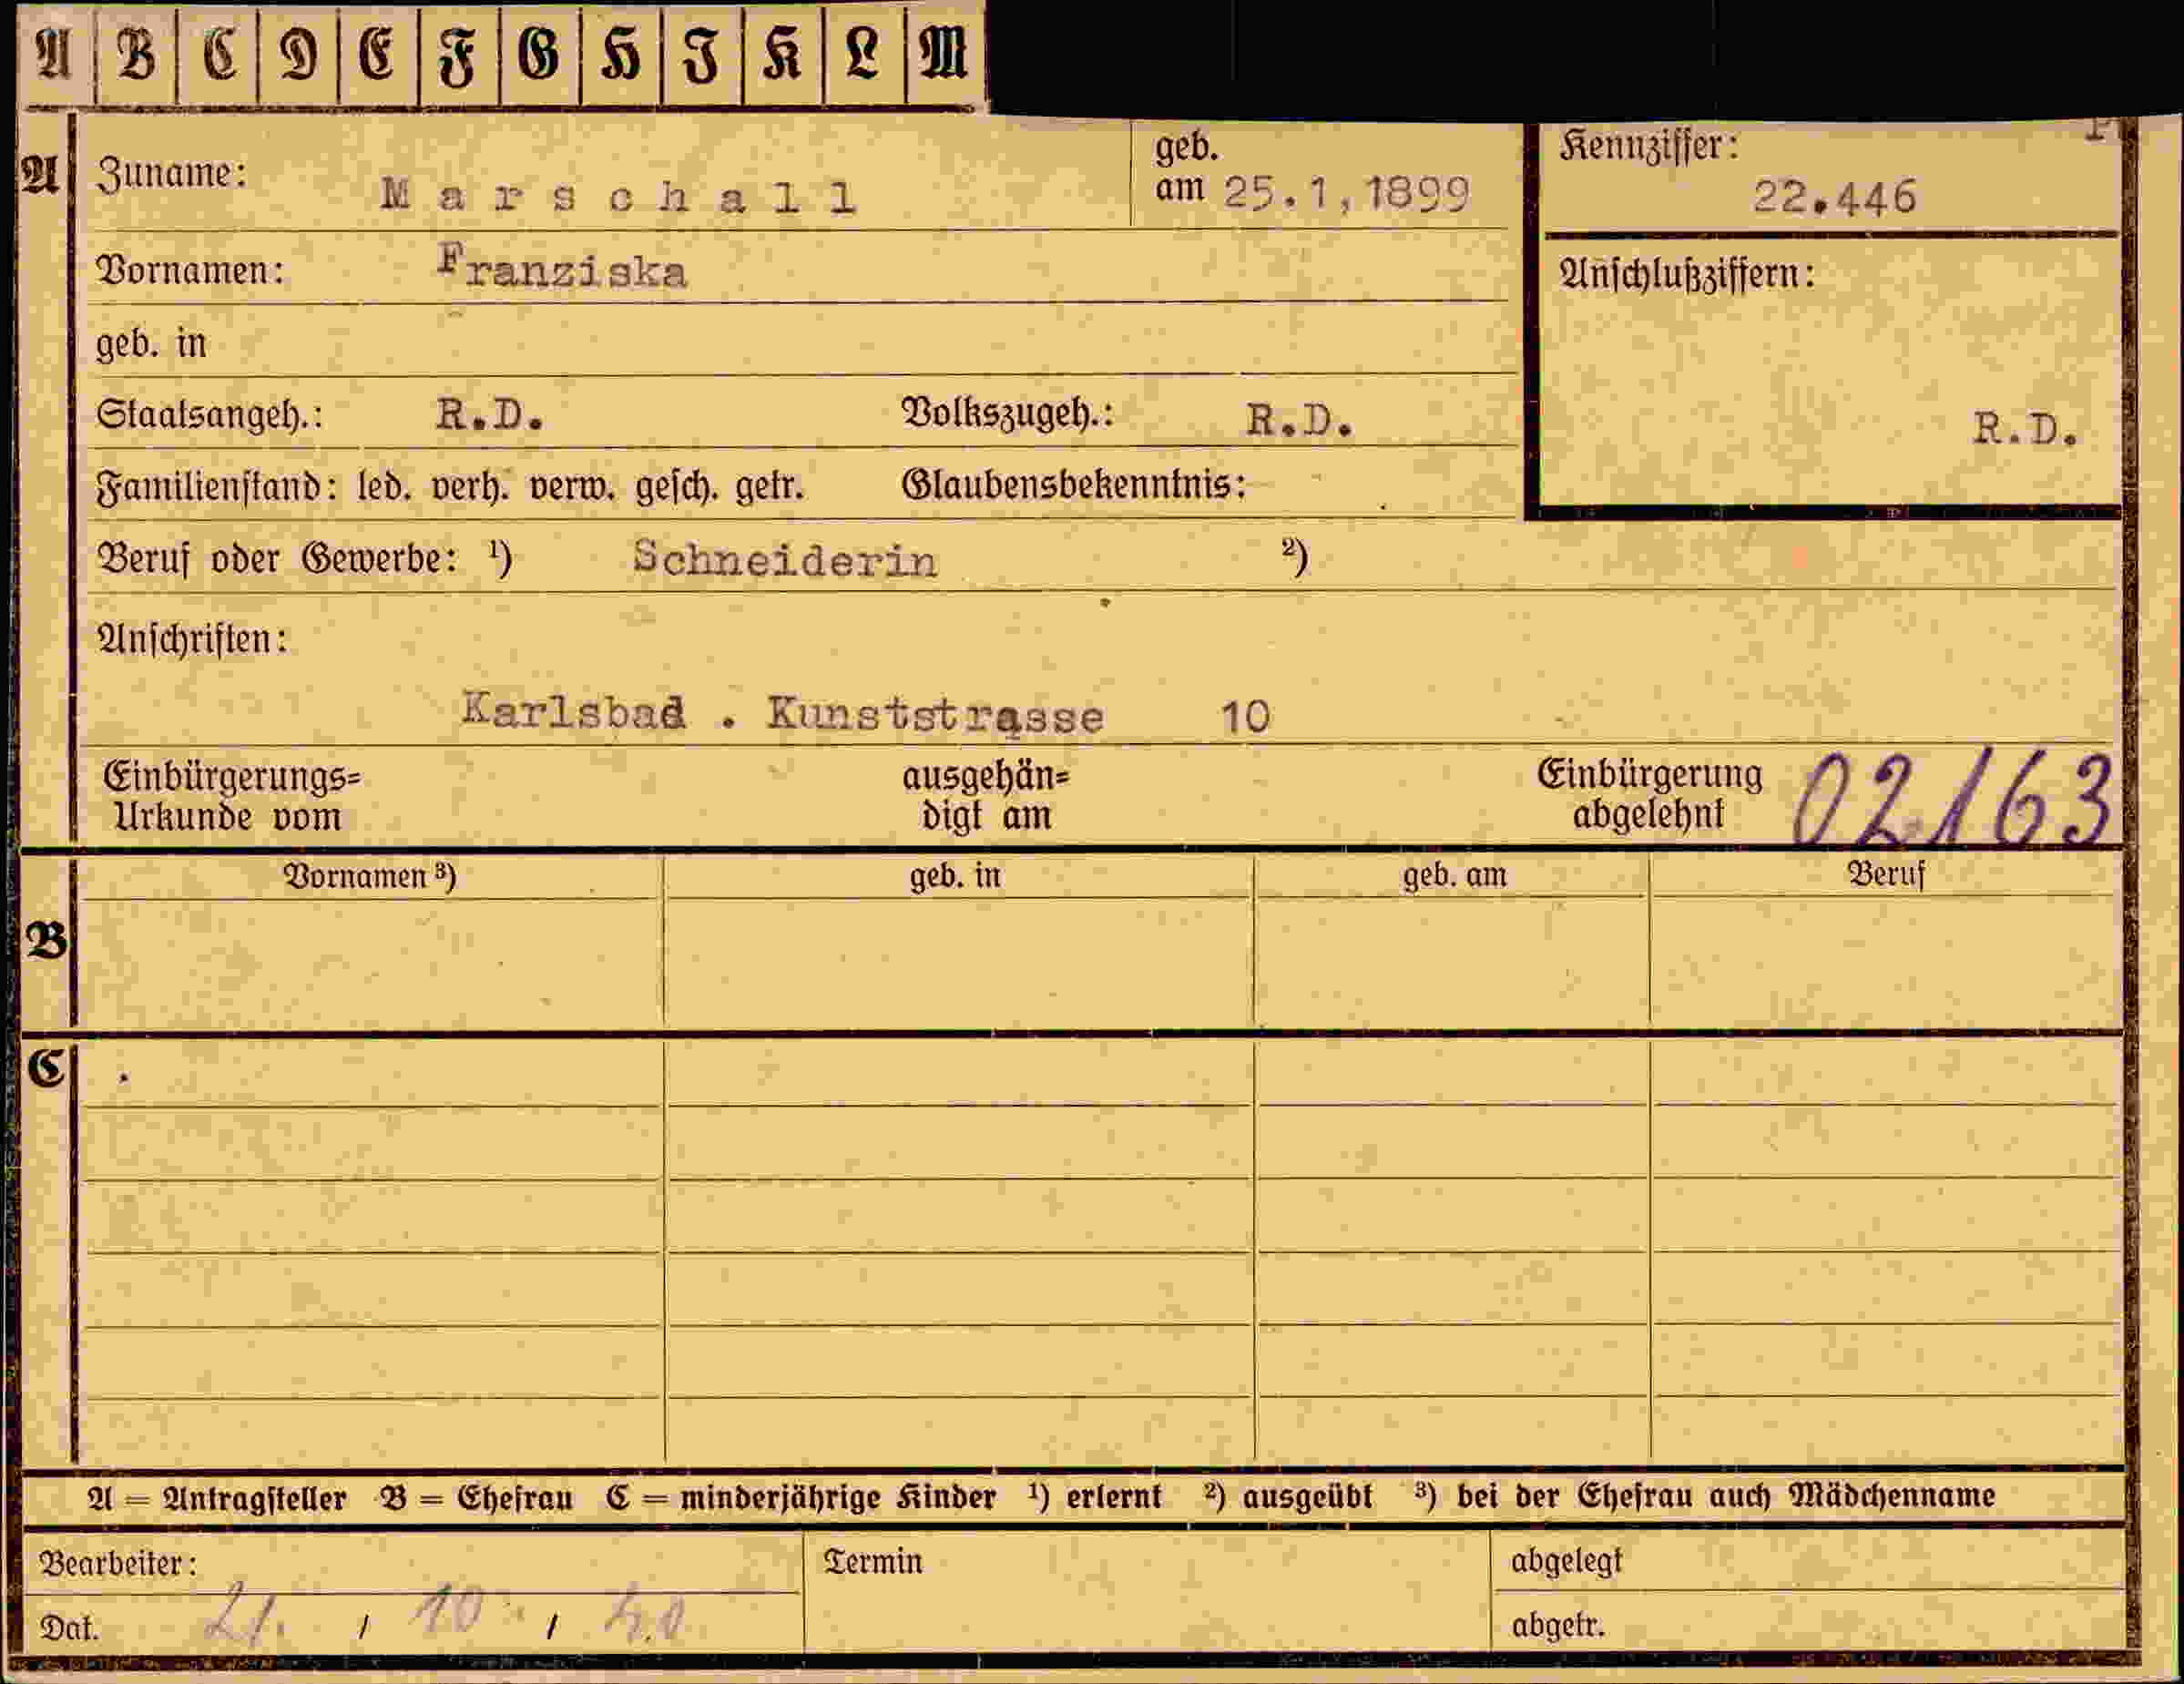 A B C D E F G H I K L M
A Zuname: Marschall geb. am 25.1,1899
Kennziffer: 22.446
Vornamen: Franziska
Anschlußziffern:
geb. in
Staatsangeh.: R.D. Volkszugeh.: R.D.
R.D.
Familienstand: led. verh. verw. gesch. getr. Glaubensbekenntnis:
Beruf oder Gewerbe: ¹) Schneiderin ²)
Anschriften:
Karlsbad . Kunststrasse 10
Einbürgerungs= ausgehän= Einbürgerung 02163
Urkunde vom digt am abgelehnt
B Vornamen ³) geb. in geb. am Beruf
C
A = Antragsteller B = Ehefrau C = minderjährige Kinder ¹) erlernt ²) ausgeübt ³) bei der Ehefrau auch Mädchenname
Bearbeiter: Termin abgelegt
Dat. 21. / 10 / 40 abgetr.